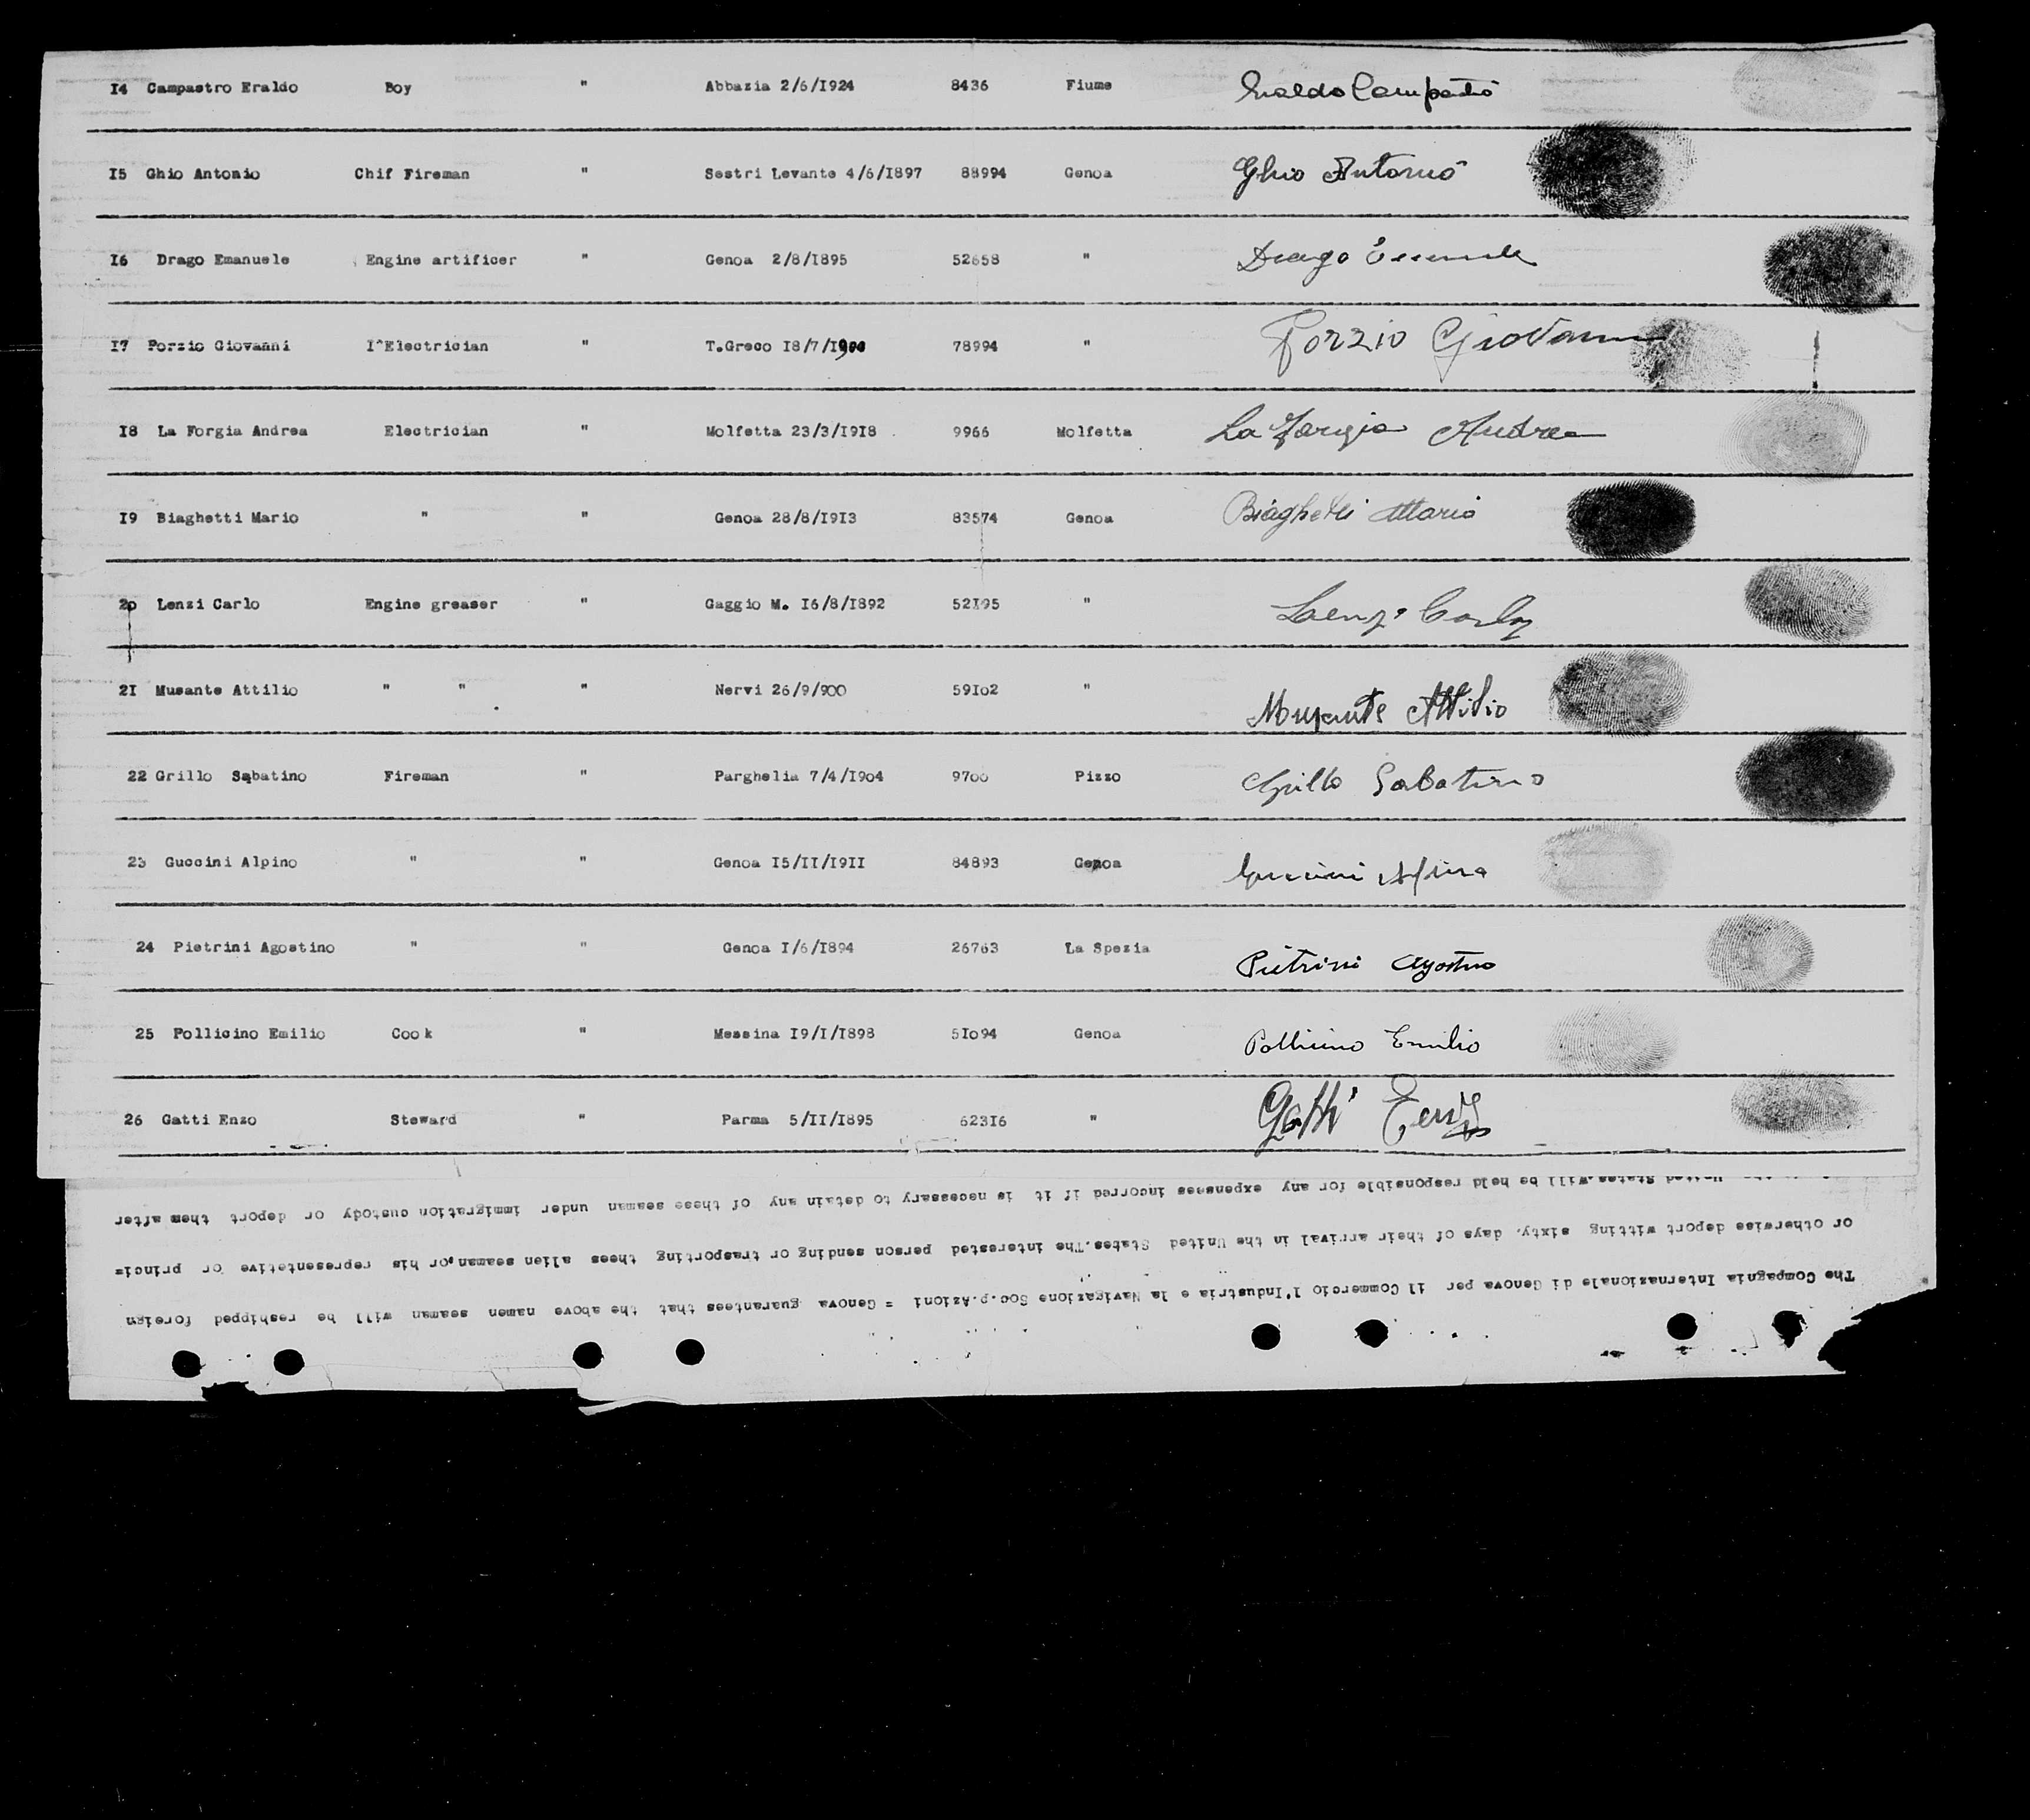 I4 Campastro Eraldo Boy " Abbazia 2/6/I924 8436 Fiume Eraldo Campastro
I5 Ghio Antonio Chif Fireman " Sestri Levante 4/6/I897 88994 Genoa Ghio Antonio
I6 Drago Emanuele Engine artificer " Genoa 2/8/I895 52658 " Drago
I7 Porzio Giovanni I^Electrician " T.Greco I8/7/I900 78994 " Porzio Giovanni
I8 La Forgia Andrea Electrician " Molfetta 23/3/I9I8 9966 Molfetta La Forgia Andrea
I9 Biaghetti Mario " " Genoa 28/8/I9I3 83574 Genoa Biaghetti Mario
2o Lenzi Carlo Engine greaser " Gaggio M. I6/8/I892 52I95 " Lenzi Carlo
2I Musante Attilio " " " Nervi 26/9/900 59Io2 " Musante Attilio
22 Grillo Sabatino Fireman " Parghelia 7/4/I9o4 97oo Pizzo Grillo Sabatino
23 Guccini Alpino " " Genoa I5/II/I9II 84893 Genoa Guccini Alpino
24 Pietrini Agostino " " Genoa I/6/I894 26763 La Spezia Pietrini Agostino
25 Pollicino Emilio Cook " Messina I9/I/I898 5Io94 Genoa Pollicino Emilio
26 Gatti Enzo Steward " Parma 5/II/I895 623I6 " Gatti Enzo
The Compagnia Internazionale di Genova per il Commercio l'Industria e la Navigazione Soc.p.Azioni = Genova guarantees that the above namen seaman will be reshipped foreign
or otherwise deport witting sixty. days of their arrival in the United States.The interested person sending or trasporting thees alien seaman,or his representetive or princi=
United States.will be held responsible for any expenses incorred if it is necessary to detain any of these seaman under immigration custody or deport them after